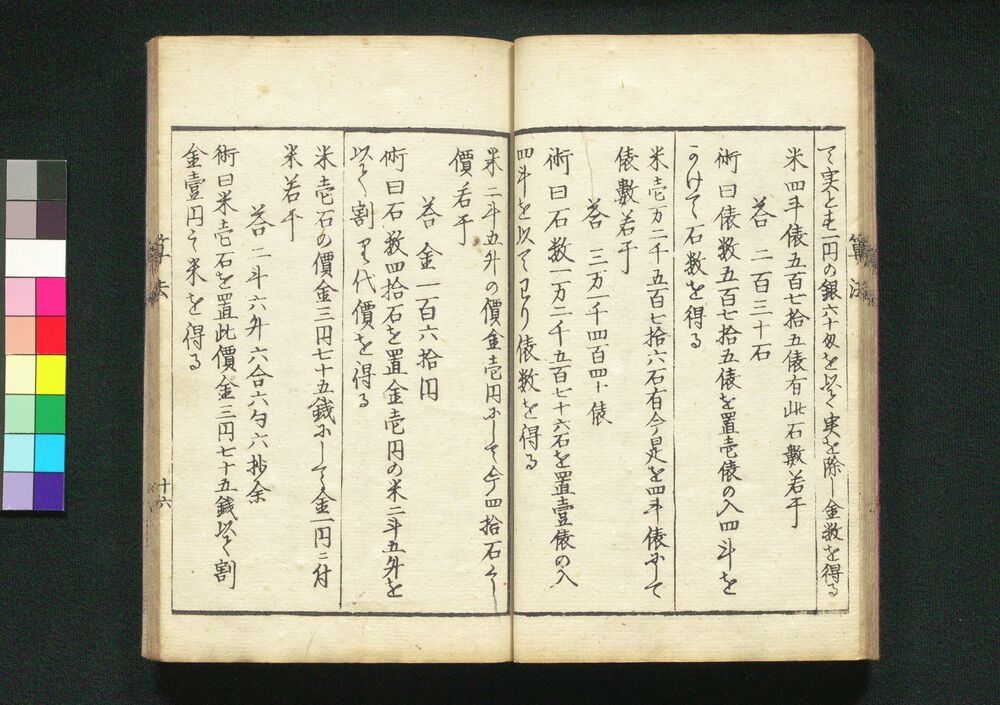 て実とす一円の銀六十匁を以て実を除し金数を得る
米四斗俵五百七拾五俵有此石數若干
答 二百三十石
術曰俵数五百七拾五俵を置壱俵の入四斗を
かけて石数を得る
米壱万二千五百七拾六石有今是を四斗俵にして
俵數若干
答 三万一千四百四十俵
術曰石数一万二千五百七十六石を置壹俵の入
四斗を以てわり俵数を得る
米二斗五升の價金壱円にして今四拾石
價若干
答 金一百六拾円
術曰石数四拾石を置金壱円の米二斗五升を
以て割り代價を得る
米壱石の價金三円七十五銭にして金一円ニ付
米若干
答 二斗六升六合六勺六抄余
術曰米壱石を置此價金三円七十五銭以て割
金壹円の米を得る
算法
十六